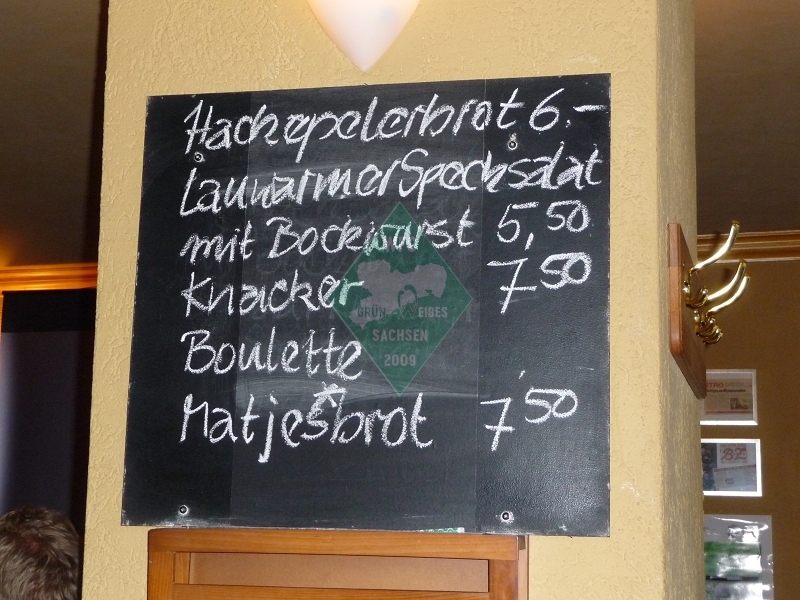 Hackepeterbrot 6.-
Lauwarmer Specksalat
mit Bockwurst 5,50
Knacker 7,50
Boulette
Matjesbrot 7,50
GRÜN-WEIßES
SACHSEN
2009